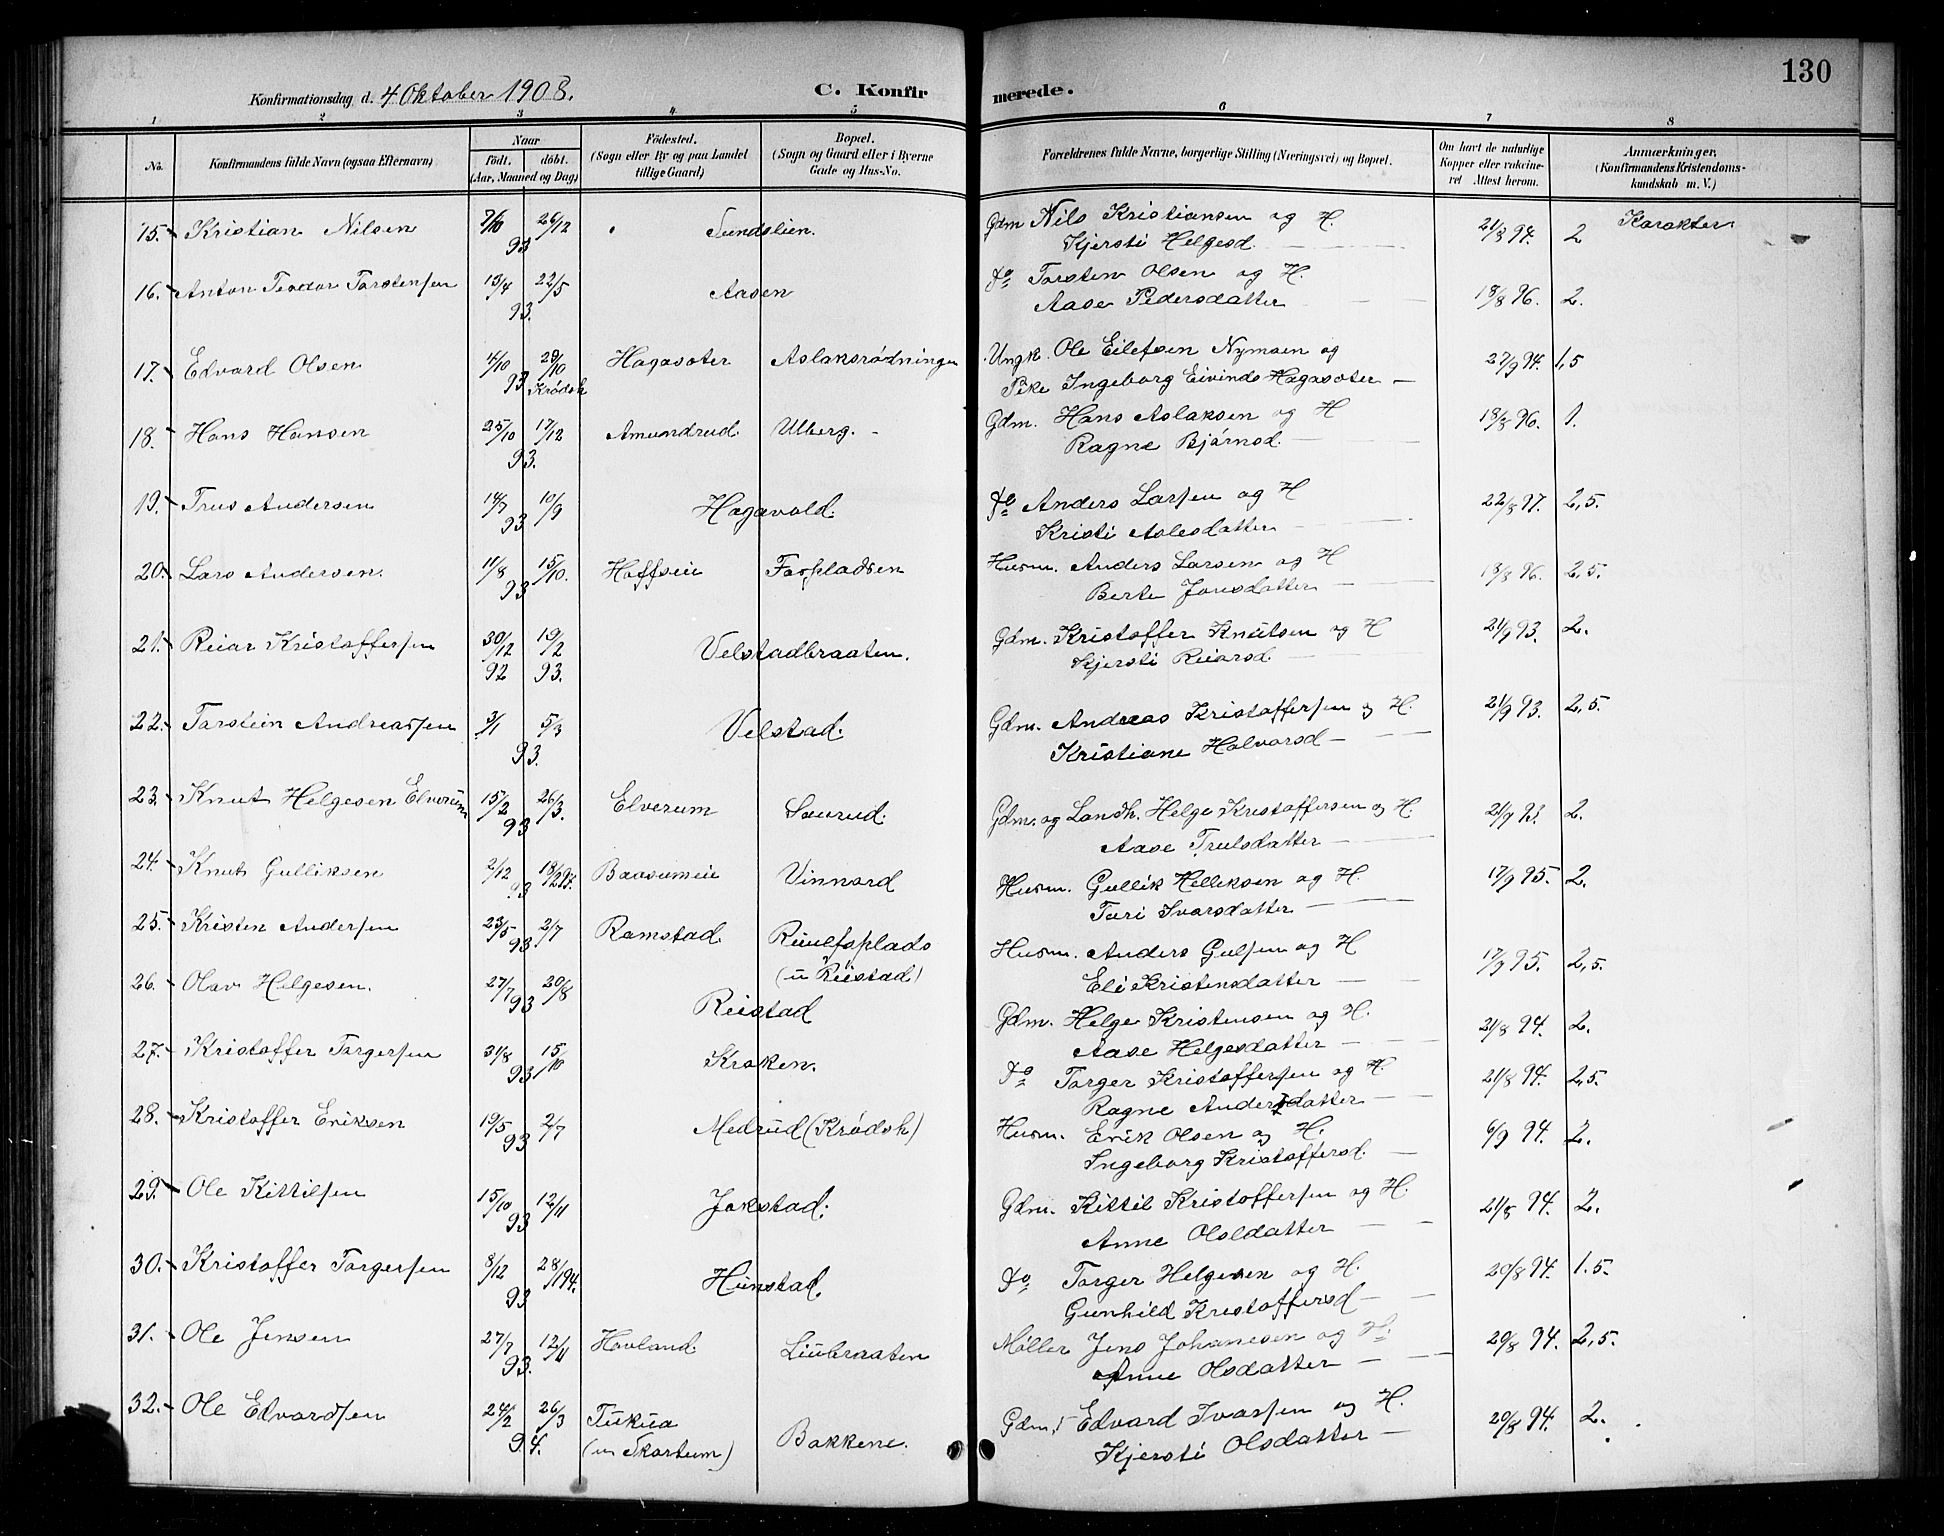 130
Konfirmationsdag d. 4 Oktober 1908. C. Konfirmerede.
1 2 3 4 5 6 7 8
No. Konfirmandens fulde Navn (ogsaa Efternavn) Naar födt. döbt. (Aar, Maaned og Dag) Födested. (Sogn eller By og paa Landet tillige Gaard) Bopæl. (Sogn og Gaard eller i Byerne Gade og Hus-No. Forældrenes fulde Navne, borgerlige Stilling (Næringsvei) og Bopæl. Om havt de naturlige Kopper eller vakcineret Attest herom. Anmærkninger, (Konfirmandens Kristendomskundskab m. V.)
15. Kristian Nilsen 7/10 26/12 Sundslien. Gdm Nils Kristiansen og H. 21/8 94. 2 Karakter
93 Kjersti Helgesd.
16. Anton Teodor Torstensen 13/4 22/5 Aasen Do Torsten Olsen og H.
93. Aase Pedersdatter 18/8 96. 2.
17. Edvard Olsen 4/10 29/10 Hagasæter Aslaksrødningen Ungk. Ole Eilefsen Nymoen og 27/9 94. 1,5
93 Krødsh Pike Ingeborg Eivinds Hagasæter
18. Hans Hansen 25/10 17/12 Amundrud Ulberg. Gdm. Hans Aslaksen og H 18/8 96. 1.
93. Ragne Bjørnsd.
19. Trus Andersen 14/7 10/9 Hagavold. Do Anders Larsen og H 22/8 97. 2,5.
93 Kristi Aslesdatter
20. Lars Andersen. 11/8 15/10. Hoffseie Fospladsen Husm. Anders Larsen og H 18/8 96. 2,5.
93 Berte Jonsdatter
21. Reiar Kristoffersen 30/12 19/2 Velstadbraaten. Gdm. Kristoffer Knutsen og H 21/9 93. 2.
92 93. Kjersti Reiarsd.
22. Torstein Andreassen 3/1 5/3 Velstad. Gdm. Andreas Kristoffersen og H. 21/9 93. 2,5.
93. Kristiane Halvorsd
23. Knut Helgesen Elverum 15/2 26/3. Elverum Saurud. Gdm. og Landh. Helge Kristoffersen og H. 21/9 93. 2.
93 Aase Trulsdatter
24. Knut Gulliksen 2/12 Baasumeie Vinnord Husm. Gullik Helliksen og H. 17/9 95. 2.
93 Turi Ivarsdatter
25. Kristen Andersen 23/5 2/7 Ramstad. Husm. Anders Gulsen og H 17/9 95. 2,5.
93 (u Reistad) Eli Kristensdatter
26. Olav Helgesen. 27/7 20/8 Reistad Gdm. Helge Kristensen og H. 21/8 94. 2.
93 Aase Helgesdatter
27. Kristoffer Torgersen 31/8 15/10 Kroken. Do Torger Kristoffersen og H. 21/8 94. 2,5.
93 Ragne Andersdatter
28. Kristoffer Eriksen 19/5 2/7 Medrud (Krødsh) Husm. Erik Olsen og H. 6/9 94. 2.
93 Ingeborg Kristoffersd.
29. Ole Kittilsen 15/10 12/11 Jokstad. Gdm. Kittil Kristoffersen og H. 21/8 94. 2.
93 Anne Olsdatter
30. Kristoffer Torgersen 8/12 28/1 94. Hunstad. Do Torger Helgesen og H. 20/8 94. 1.5.
93 Gunhild Kristoffersd
31. Ole Jensen 27/7 12/11 Hovland. Liubraaten Møller Jens Johanesen og H. 20/8 94. 2,5.
93. Anne Olsdatter
32. Ole Edvardsen 24/2 26/3 Tukua Gdm. Edvard Ivarsen og H. 20/8 94. 2.
94. (u Skartum) Bakkene. Kjersti Olsdatter